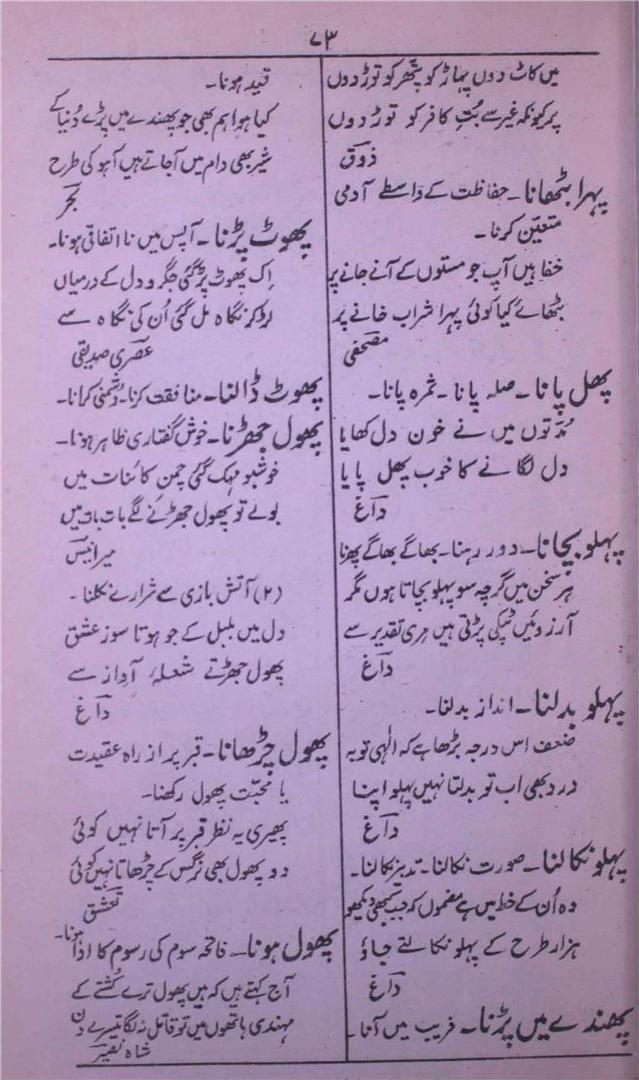 ۷۳
میں کاٹ دوں پہاڑ کو پتھر کو توڑ دوں
پر کیونکہ غیر سے بُتِ کافر کو توڑ دوں
ذوق
پہرا بٹھانا۔ حفاظت کے واسطے آدمی
متعیّن کرنا۔
خفا ہیں آپ جو مستوں کے آنے جانے پر
بٹھائے گیا کوئی پہرا شراب خانے پر
مصحفی
پھل پانا۔ صلہ پانا۔ ثمرہ پانا۔
مُدّتوں میں نے خون دل کھایا
دل لگانے کا خوب پھل پایا
داغ
پہلو بچانا۔ دور رہنا۔ بھاگے بھاگے پھرنا
ہر سخن میں گرچہ سو پہلو بچاتا ہوں مگر
آرزوئیں ٹپکی پڑتی ہیں مری تقدیر سے
داغ
پہلو بدلنا۔ انداز بدلنا۔
ضعف اس درجہ بڑھا ہے کہ الٰہی توبہ
درد بھی اب تو بدلتا نہیں پہلو اپنا
داغ
پہلو نکالنا۔ صورت نکالنا۔ تدبیر نکالنا۔
وہ اُن کے خط میں ہے مضموں کہ جب کبھی دیکھو
ہزار طرح کے پہلو نکالتے جاؤ
داغ
پھندے میں پڑنا۔ فریب میں آنا۔
قید ہونا۔
کیا ہوا ہم بھی جو پھندے میں پڑے دُنیا کے
شیر بھی دام میں آجاتے ہیں آہو کی طرح
بحر
پھوٹ پڑنا۔ آپس میں نا اتفاقی ہونا۔
اِک پھوٹ پڑ گئی جگر و دل کے درمیاں
لڑ کر نگاہ مل گئی اُن کی نگاہ سے
عصری صدیقی
پھوٹ ڈالنا۔ منافقت کرنا۔ دشمنی کرانا۔
پھول جھڑنا۔ خوش گفتاری ظاہر ہونا۔
خوشبو مہک گئی چمن کائنات میں
بولے تو پھول جھڑنے لگے بات بات میں
میر انیس
(۲) آتش بازی سے شرارے نکلنا۔
دل میں بلبل کے جو ہوتا سوز عشق
پھول جھڑتے شعلۂ آواز سے
داغ
پھول چڑھانا۔ قبر پر از راہ عقیدت
یا محبّت پھول رکھنا۔
پھیری یہ نظر قبر پر آتا نہیں کوئی
دو پھول بھی نرگس کے چڑھاتا نہیں کوئی
تعشق
پھول ہونا۔ فاتحہ سوم کی رسوم کا ادا ہونا۔
آج کہتے ہیں کہ ہیں پھول ترے کُشتے کے
مہندی ہاتھوں میں تو قاتل نہ لگا تیسرے دن
شاہ نصیر